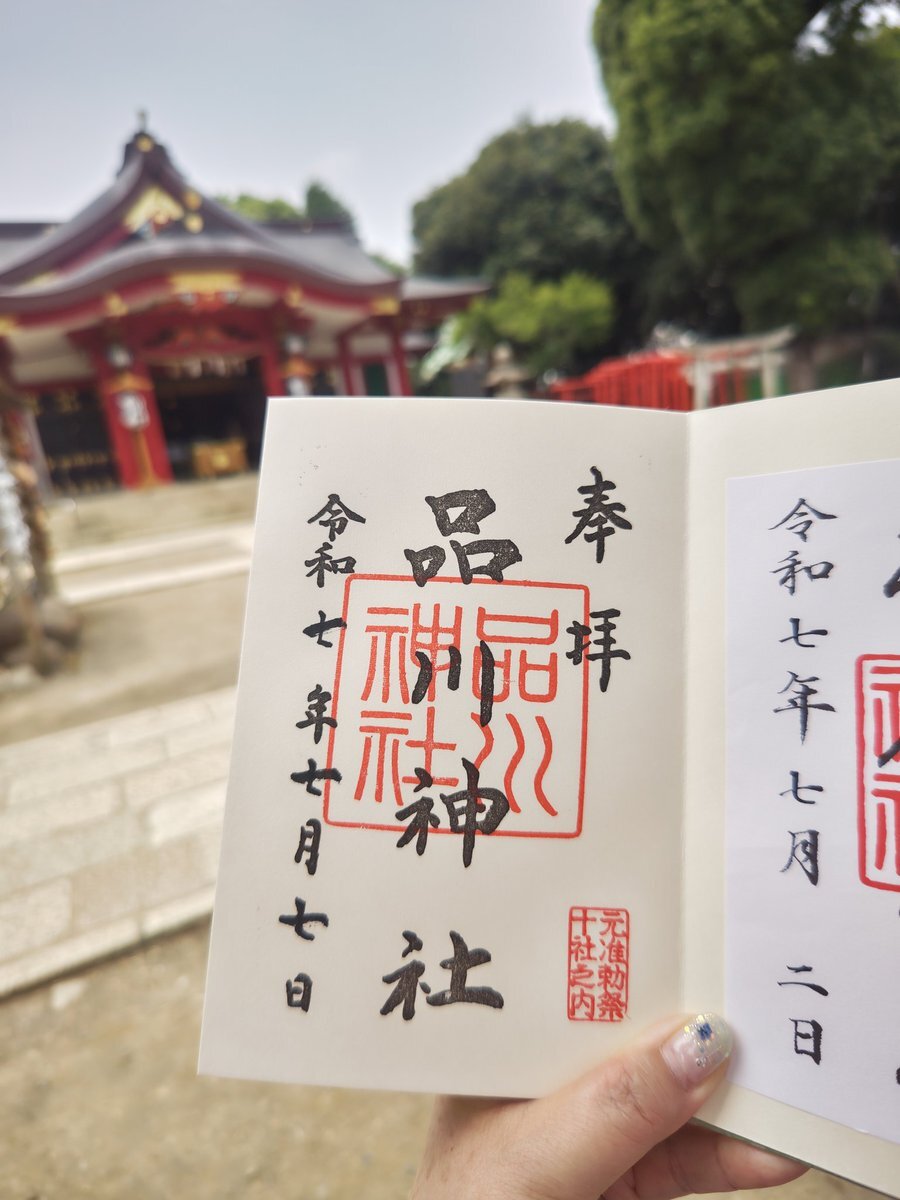 奉拝
品川神社
品川神社
元准勅祭
十社之内
令和七年七月七日
令和七年七月二日